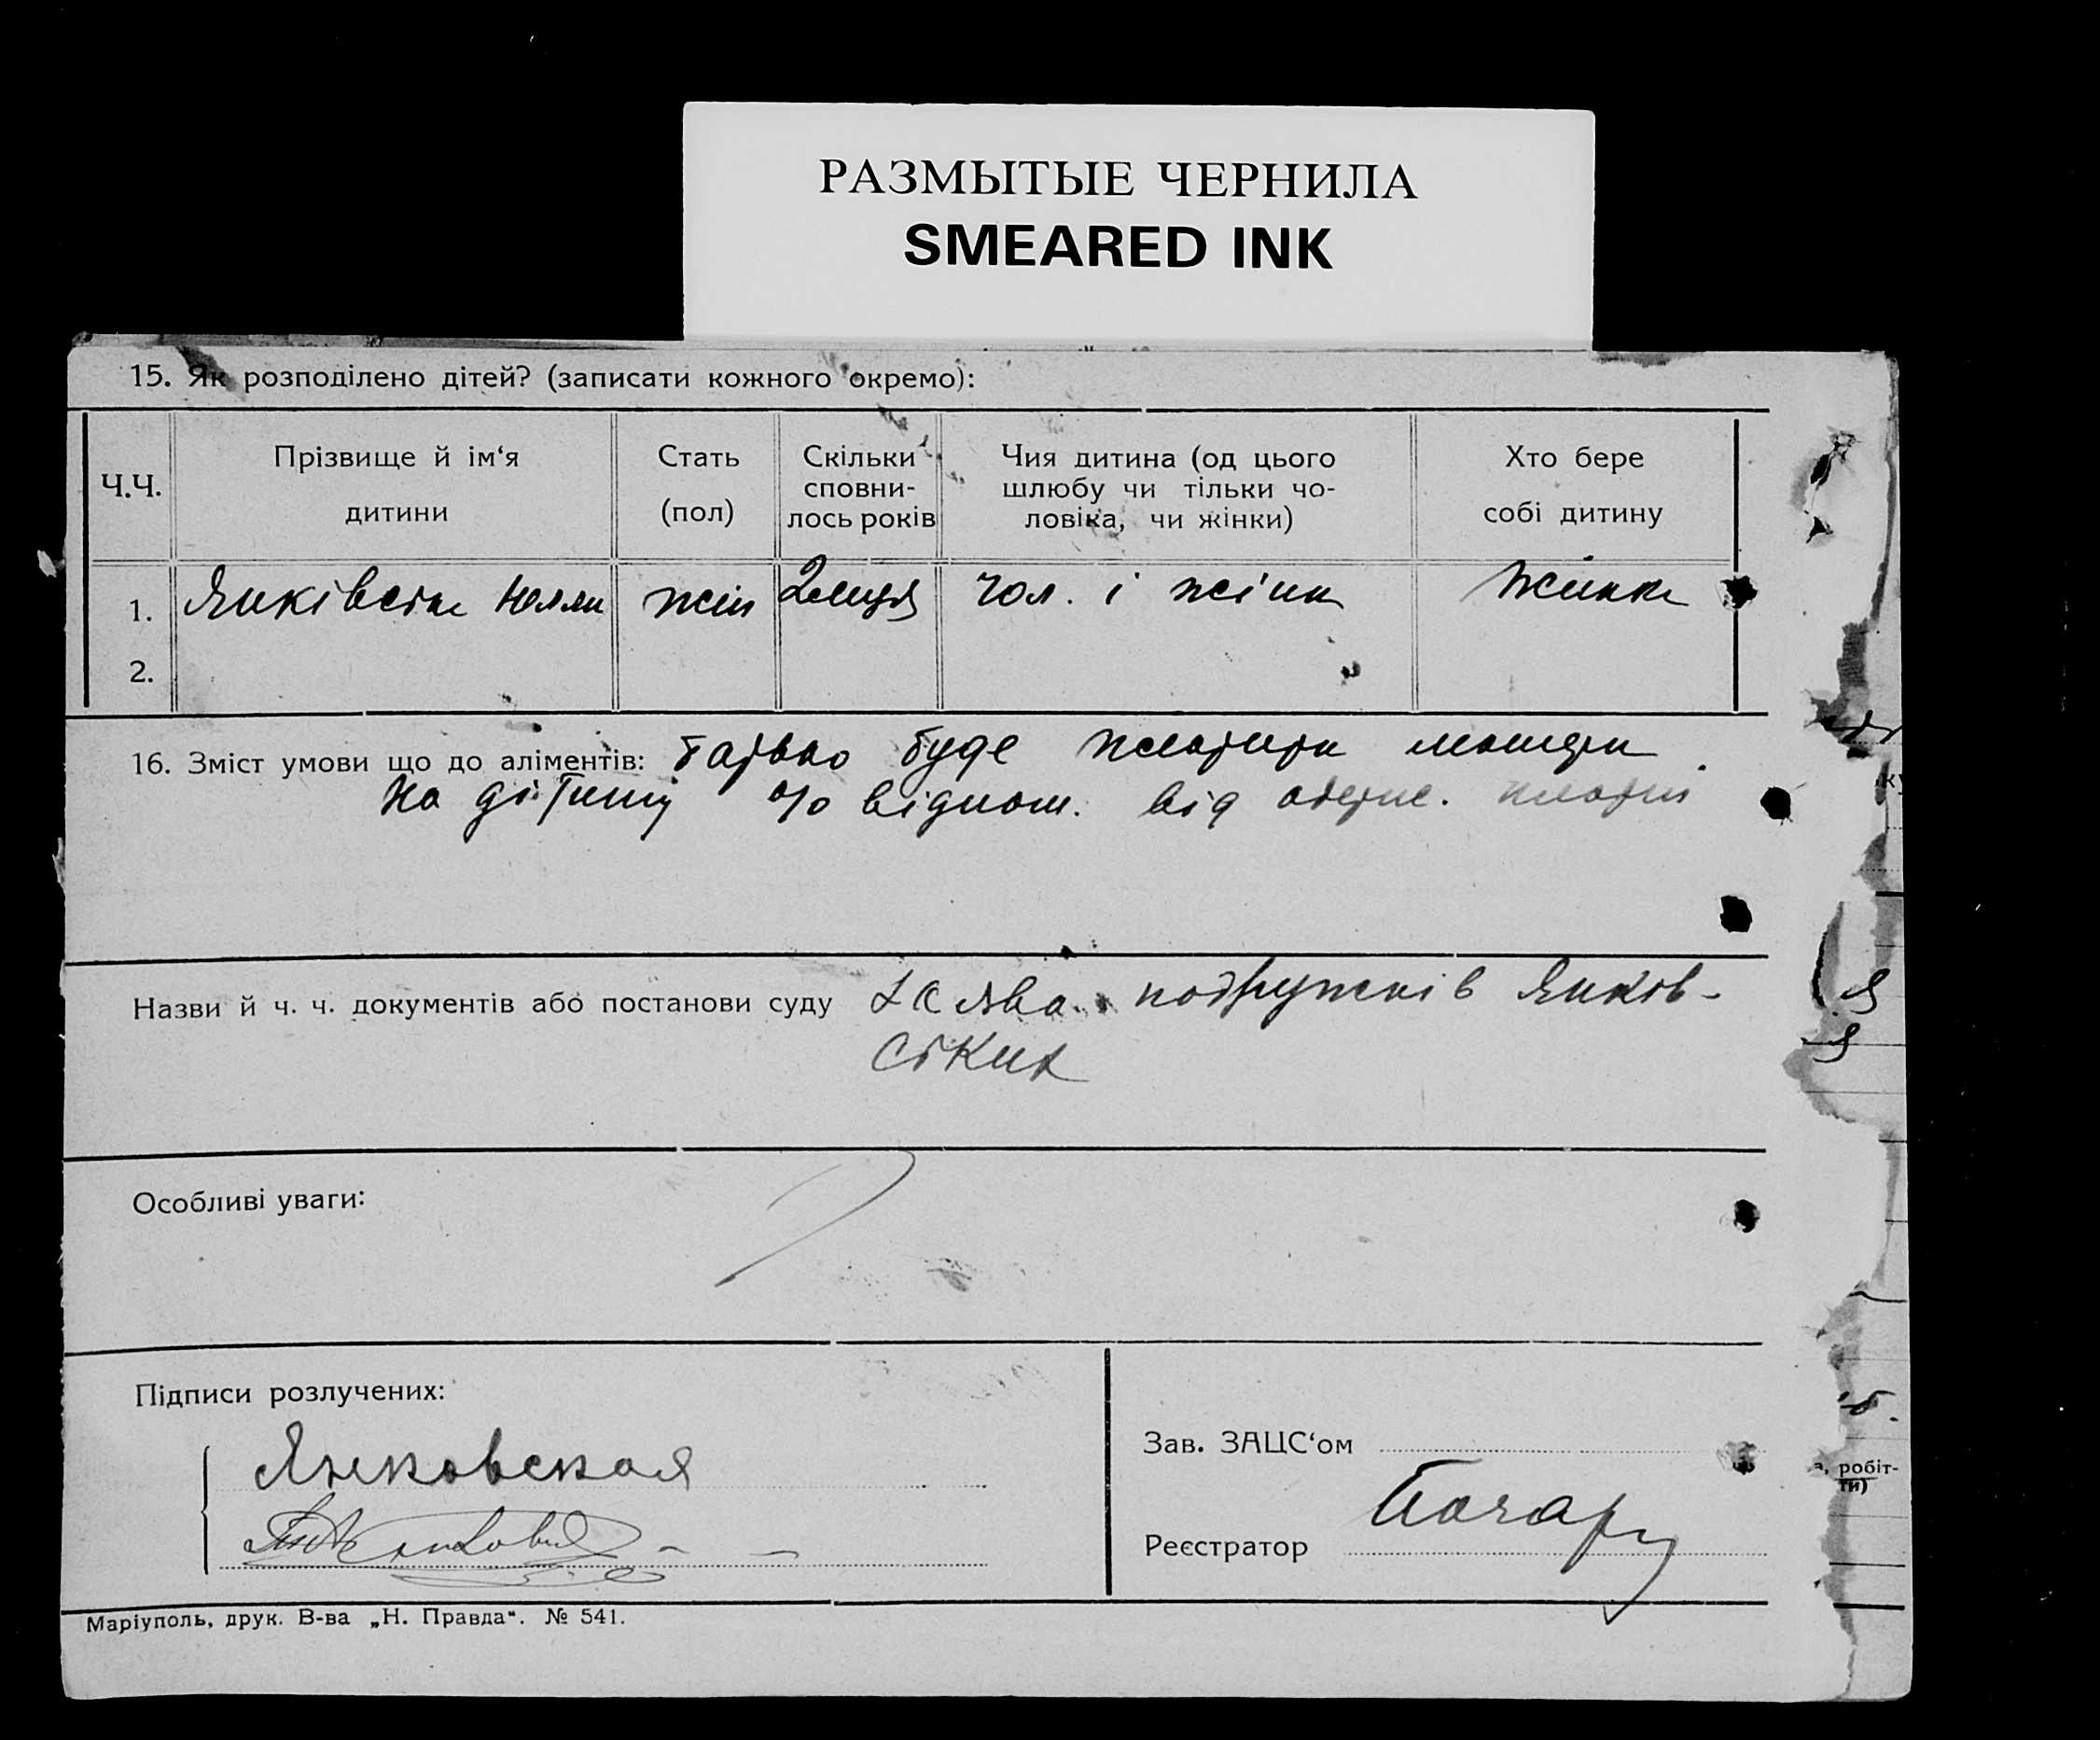 РАЗМЫТЫЕ ЧЕРНИЛА
SMEARED INK
15. Як розподілено дітей? (записати кожного окремо):
Ч.Ч.
Прізвище й ім‘я
дитини
Стать
(пол)
Скільки
сповни-
лось років
Чия дитина (од цього
шлюбу чи тільки чо-
ловіка, чи жінки)
Хто бере
собі дитину
1. Янківська жін 2 чол. і жінки Жінка
2.
16. Зміст умови що до аліментів: батько буде платити
на дітину % віднош. від платні
Назви й ч. ч. документів або постанови суду подружків Янків-
ських
Особливі уваги:
Підписи розлучених:
Янковская
Зав. ЗАЦС‘ом
Реєстратор
Маріуполь, друк. В-ва „Н. Правда“. № 541.
робіт-
ти)